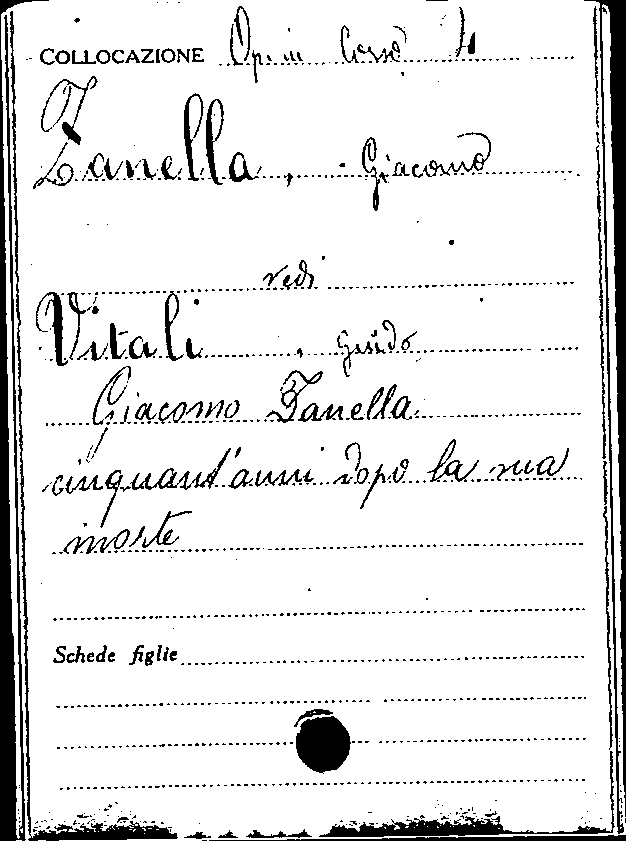 COLLOCAZIONE Op. in Corso
Zanella, Giacomo
vedi
Vitali, Guido
Giacomo Zanella
cinquant'anni dopo la sua
morte
Schede figlie